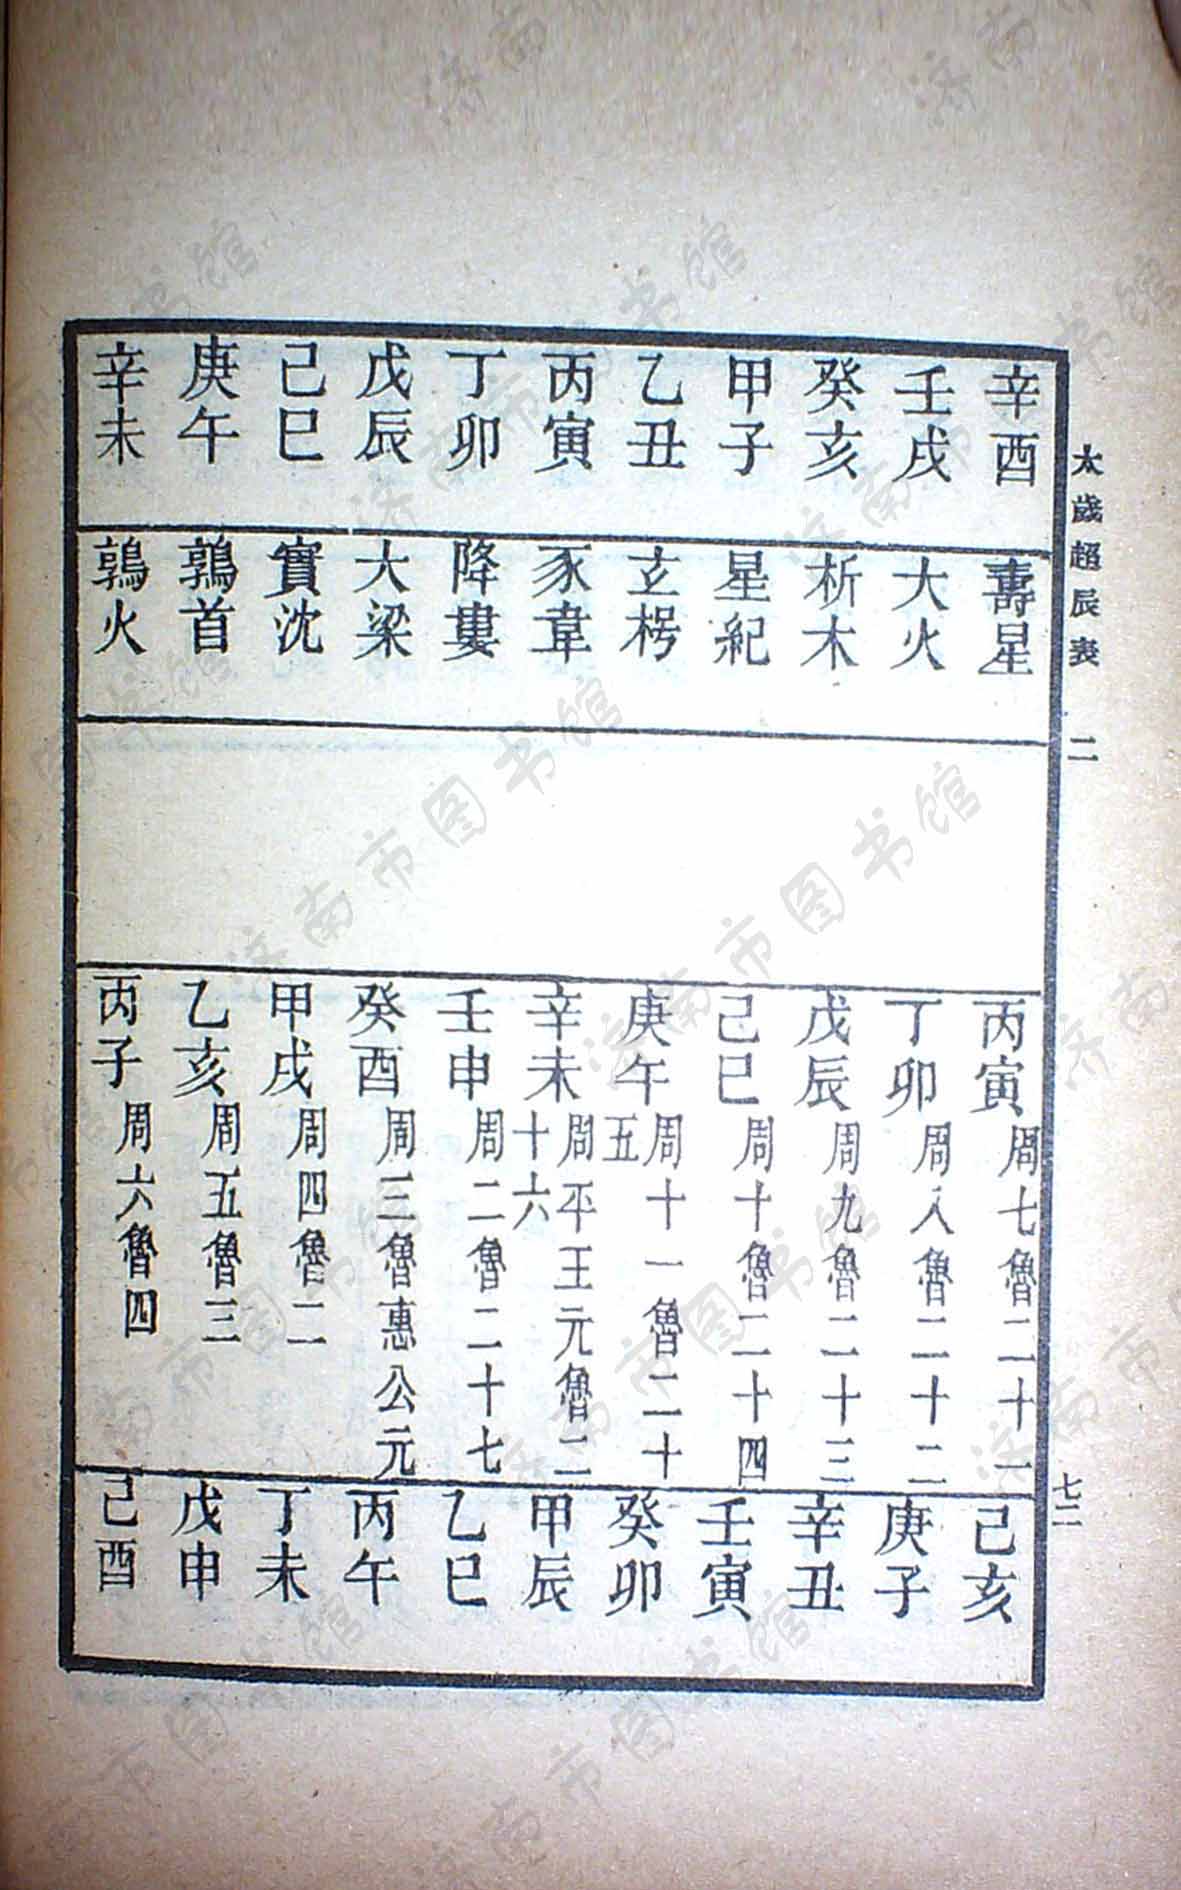 太歲超辰表 二 七二
辛酉 壽星 丙寅 周七魯二十一 己亥
壬戌 大火 丁卯 周八魯二十二 庚子
癸亥 析木 戊辰 周九魯二十三 辛丑
甲子 星紀 己巳 周十魯二十四 壬寅
乙丑 玄枵 庚午 周十一魯二十五 癸卯
丙寅 豕韋 辛未 周平王元魯二十六 甲辰
丁卯 降婁 壬申 周二魯二十七 乙巳
戊辰 大梁 癸酉 周三魯惠公元 丙午
己巳 實沈 甲戌 周四魯二 丁未
庚午 鶉首 乙亥 周五魯三 戊申
辛未 鶉火 丙子 周六魯四 己酉
济南市图书馆